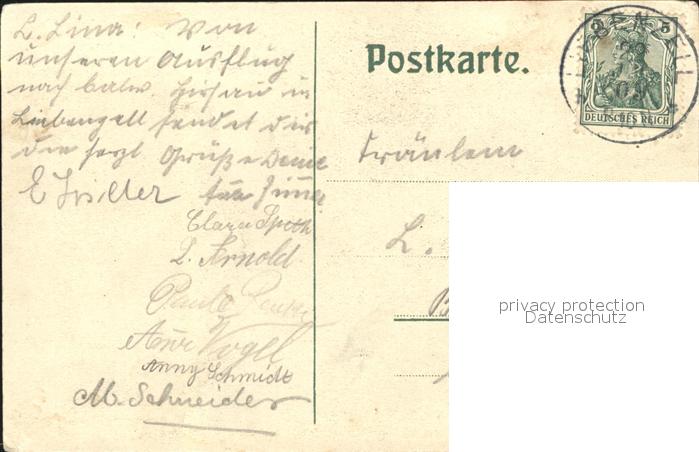 L. Lina! Von
unseren Ausflug
nach Calw. Hirsau u
Liebenzell sendet dir
die herzl Grüße Deine
E
Clara Speth
L. Arnold
Paula
Vogel
Anny Schmidt
M. Schneider
Postkarte.
5
DEUTSCHES REICH
Fräulein
L.
privacy protection
Datenschutz